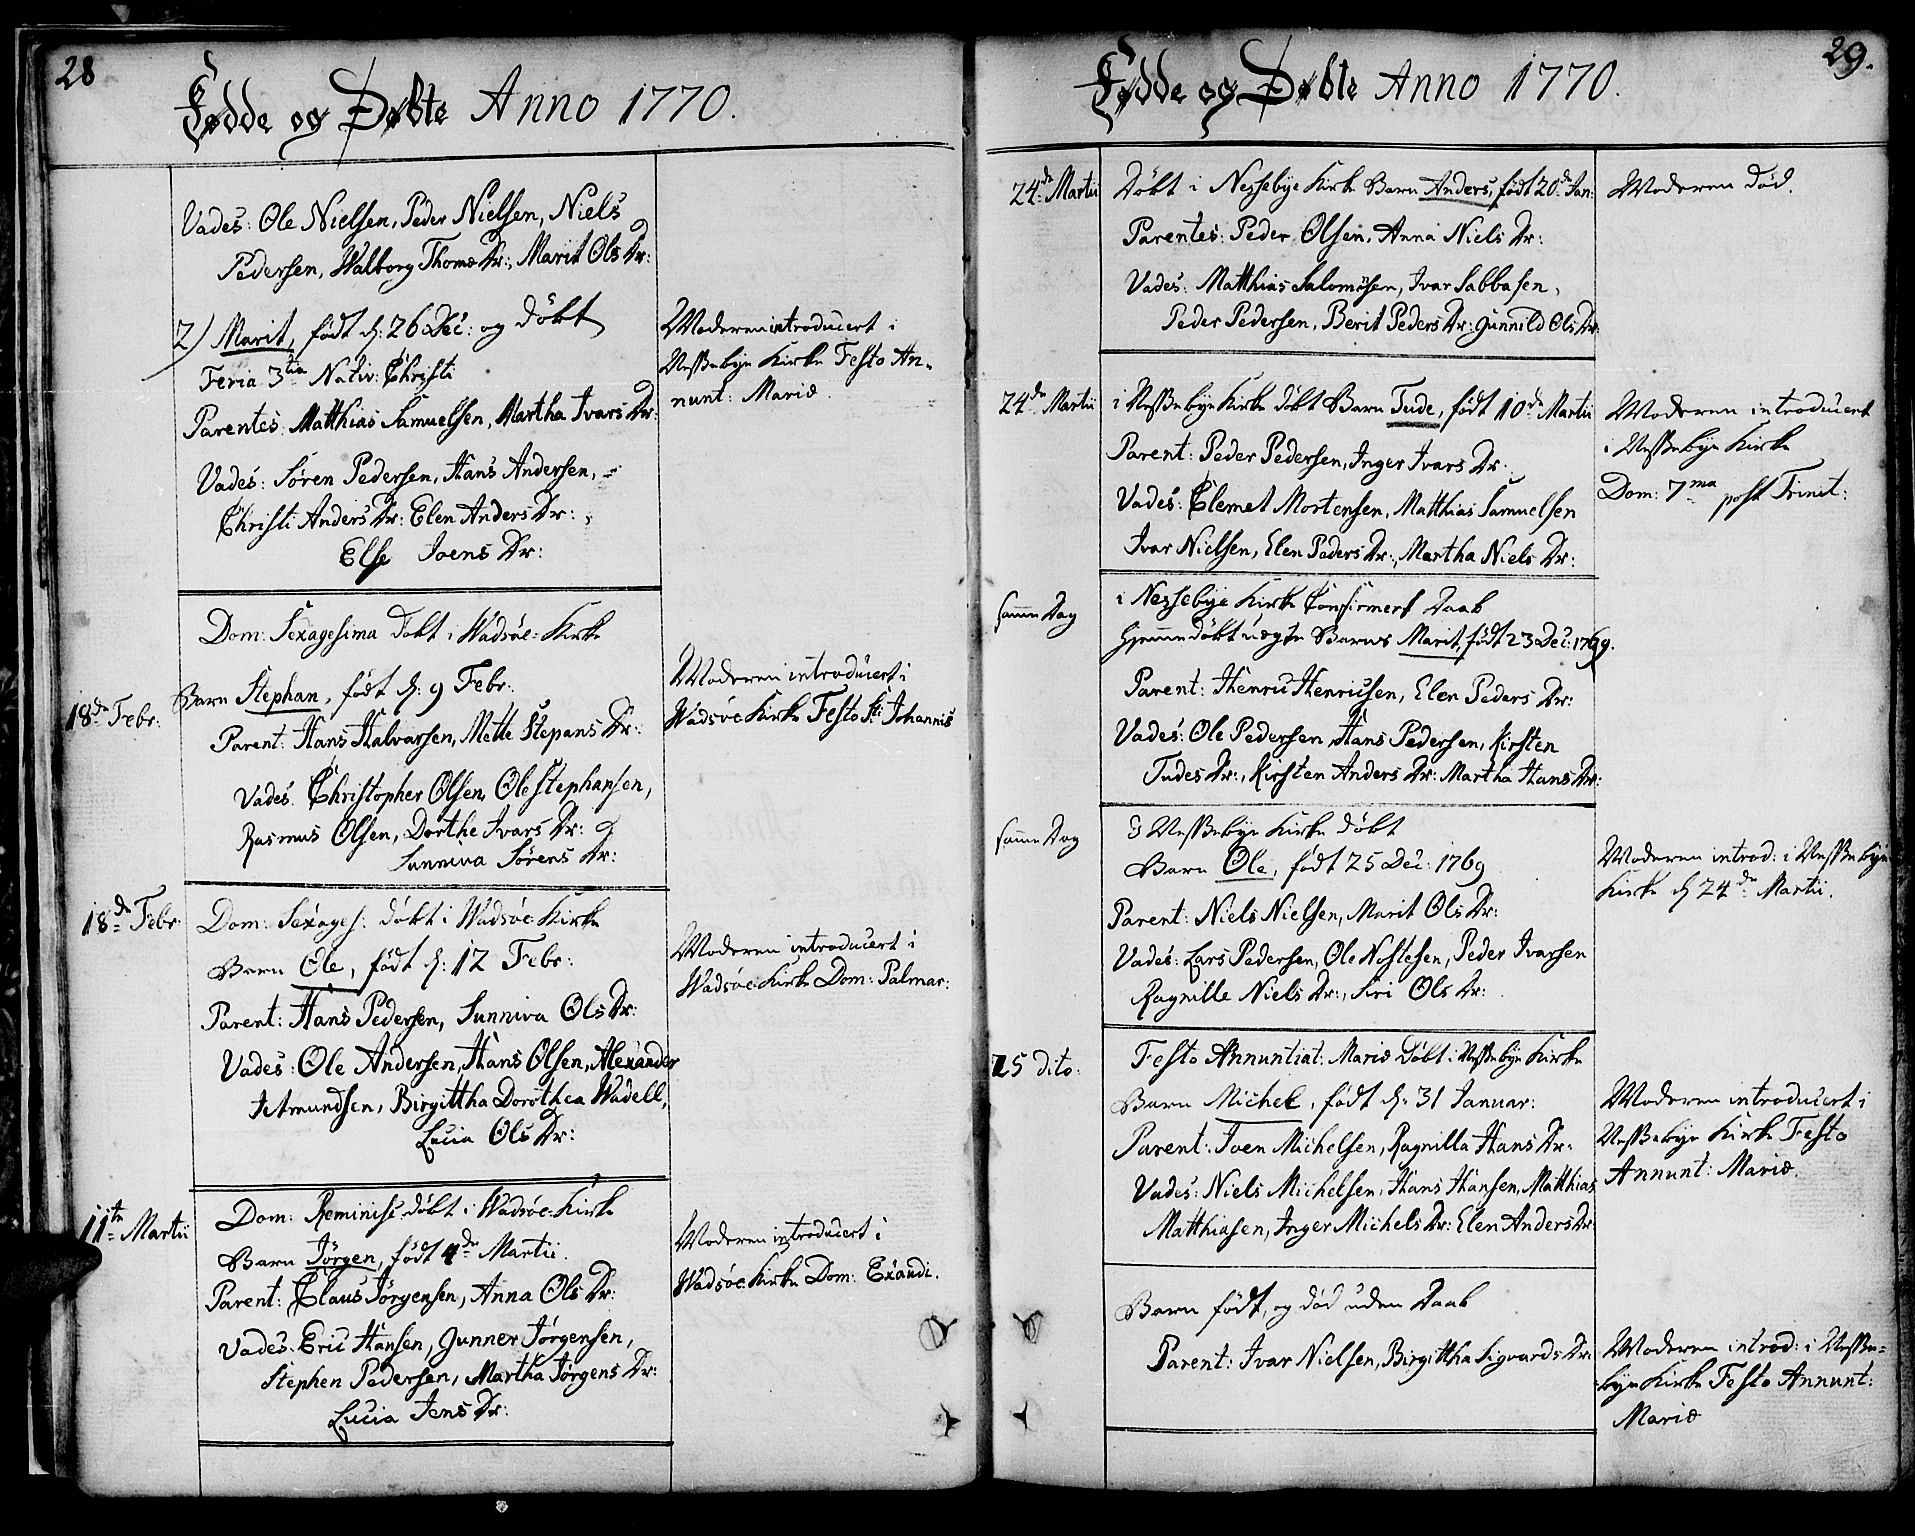 28
Fødde og Døbte Anno 1770.
Vades: Ole Nielsen, Peder Nielsen, Niels
Pedersen, Walborg Thomæ Dr:, Marit Ols Dr:
2) Marit, födt d: 26 Dec: og döbt
Feria 3tia Nativ: Christi
Parentes: Matthias Samuelsen, Martha Ivars Dr:
Vades: Sören Pedersen, Hans Andersen,
Christi Anders Dr: Elen Anders Dr:,
Else Joens Dr:
Moderen introducert i
Nessebye Kirke Festo An-
nunt: Mariæ.
18de Febr:
Dom: Sexagesima döbt i Wadsöe Kirke
Barn Stephan, födt d: 9 Febr:
Parent: Hans Halvarsen, Mette Stepans Dr:
Vades. Christopher Olsen, Ole Stephansen,
Rasmus Olsen, Dorthe Ivars Dr: &
Sunniva Sörens Dr:
Moderen introducert i
Wadsöe Kirke Festo Sti Johannis
18de Febr
Dom: Sexages: döbt i Wadsöe Kirke
Barn Ole, födt d: 12 Febr:
Parent: Hans Pedersen, Sunniva Ols Dr:
Vades: Ole Andersen, Hans Olsen, Alexander
Aetmundsen, Birgittha Dorothea Wadell,
Lucia Ols Dr:
Moderen introducert i
Wadsöe Kirke Dom: Palmar:
11te Martii
Dom: Reminisc: döbt i Wadsöe Kirke
Barn Jörgen, födt 4de Martii.
Parent: Claus Jörgensen, Anna Ols Dr:
Vades. Eric Hansen, Gunner Jörgensen,
Stephen Pedersen, Martha Jörgens Dr:
Lucia Jens Dr:
Moderen introducert i
Wadsöe Kirke Dom: Exaudi.
29.
Fødde og Døbte Anno 1770.
24de Martii
Döbt i Nessebye Kirke Barn Anders, födt 20de Jan:
Parentes: Peder Olsen, Anna Niels Dr:
Vades: Matthias Salomonsen, Ivar Sabbasen,
Peder Pedersen, Berit Peders Dr: Gunnild Ols Dr:
Moderen död.
24de Martii
i Nessebye Kirke döbt Barn Tude, födt 10de Martii
Parent: Peder Pedersen, Inger Ivars Dr:
Vades: Clemet Mortensen, Matthias Samuelsen
Ivar Nielsen, Elen Peders Dr:, Martha Niels Dr:
Moderen introducert
i Nessebye Kirke
Dom: 7ma post Trinit:
samme Dag
i Nessebye Kirke Confirmert Daab
hjemmedöbt uægte Barns Marit, födt 23 Dec: 1769.
Parent: Henric Henricsen, Elen Peders Dr:
Vades: Ole Pedersen, Hans Pedersen, Kirsten
Tudes Dr:, Kirsten Anders Dr: Martha Hans Dr:
samme Dag
i Nessebye Kirke döbt
Barn Ole, födt 25 Dec: 1769
Parent: Niels Nielsen, Marit Ols Dr:
Vades: Lars Pedersen, Ole Nielsen, Peder Ivarsen
Ragnille Niels Dr:, Siri Ols Dr:
Moderen introd: i Nessebye
Kirke d 24de Martii.
25 dito.
Festo Annuntiat: Mariæ Döbt i Nessebye Kirke
Barn Michel, födt d: 31 Januar:
Parent: Joen Michelsen, Ragnilla Hans Dr:
Vades: Niels Michelsen, Hans Hansen, Matthias
Matthiasen, Inger Michels Dr: Elen Anders Dr:
Moderen introducert i
Nessebye Kirke Festo
Annunt: Mariæ.
Barn födt, og död uden Daab
Parent: Ivar Nielsen, Birgittha Sigvards Dr:
Moderen introd: i Nesse-
bye Kirke Festo Annunt:
Mariæ